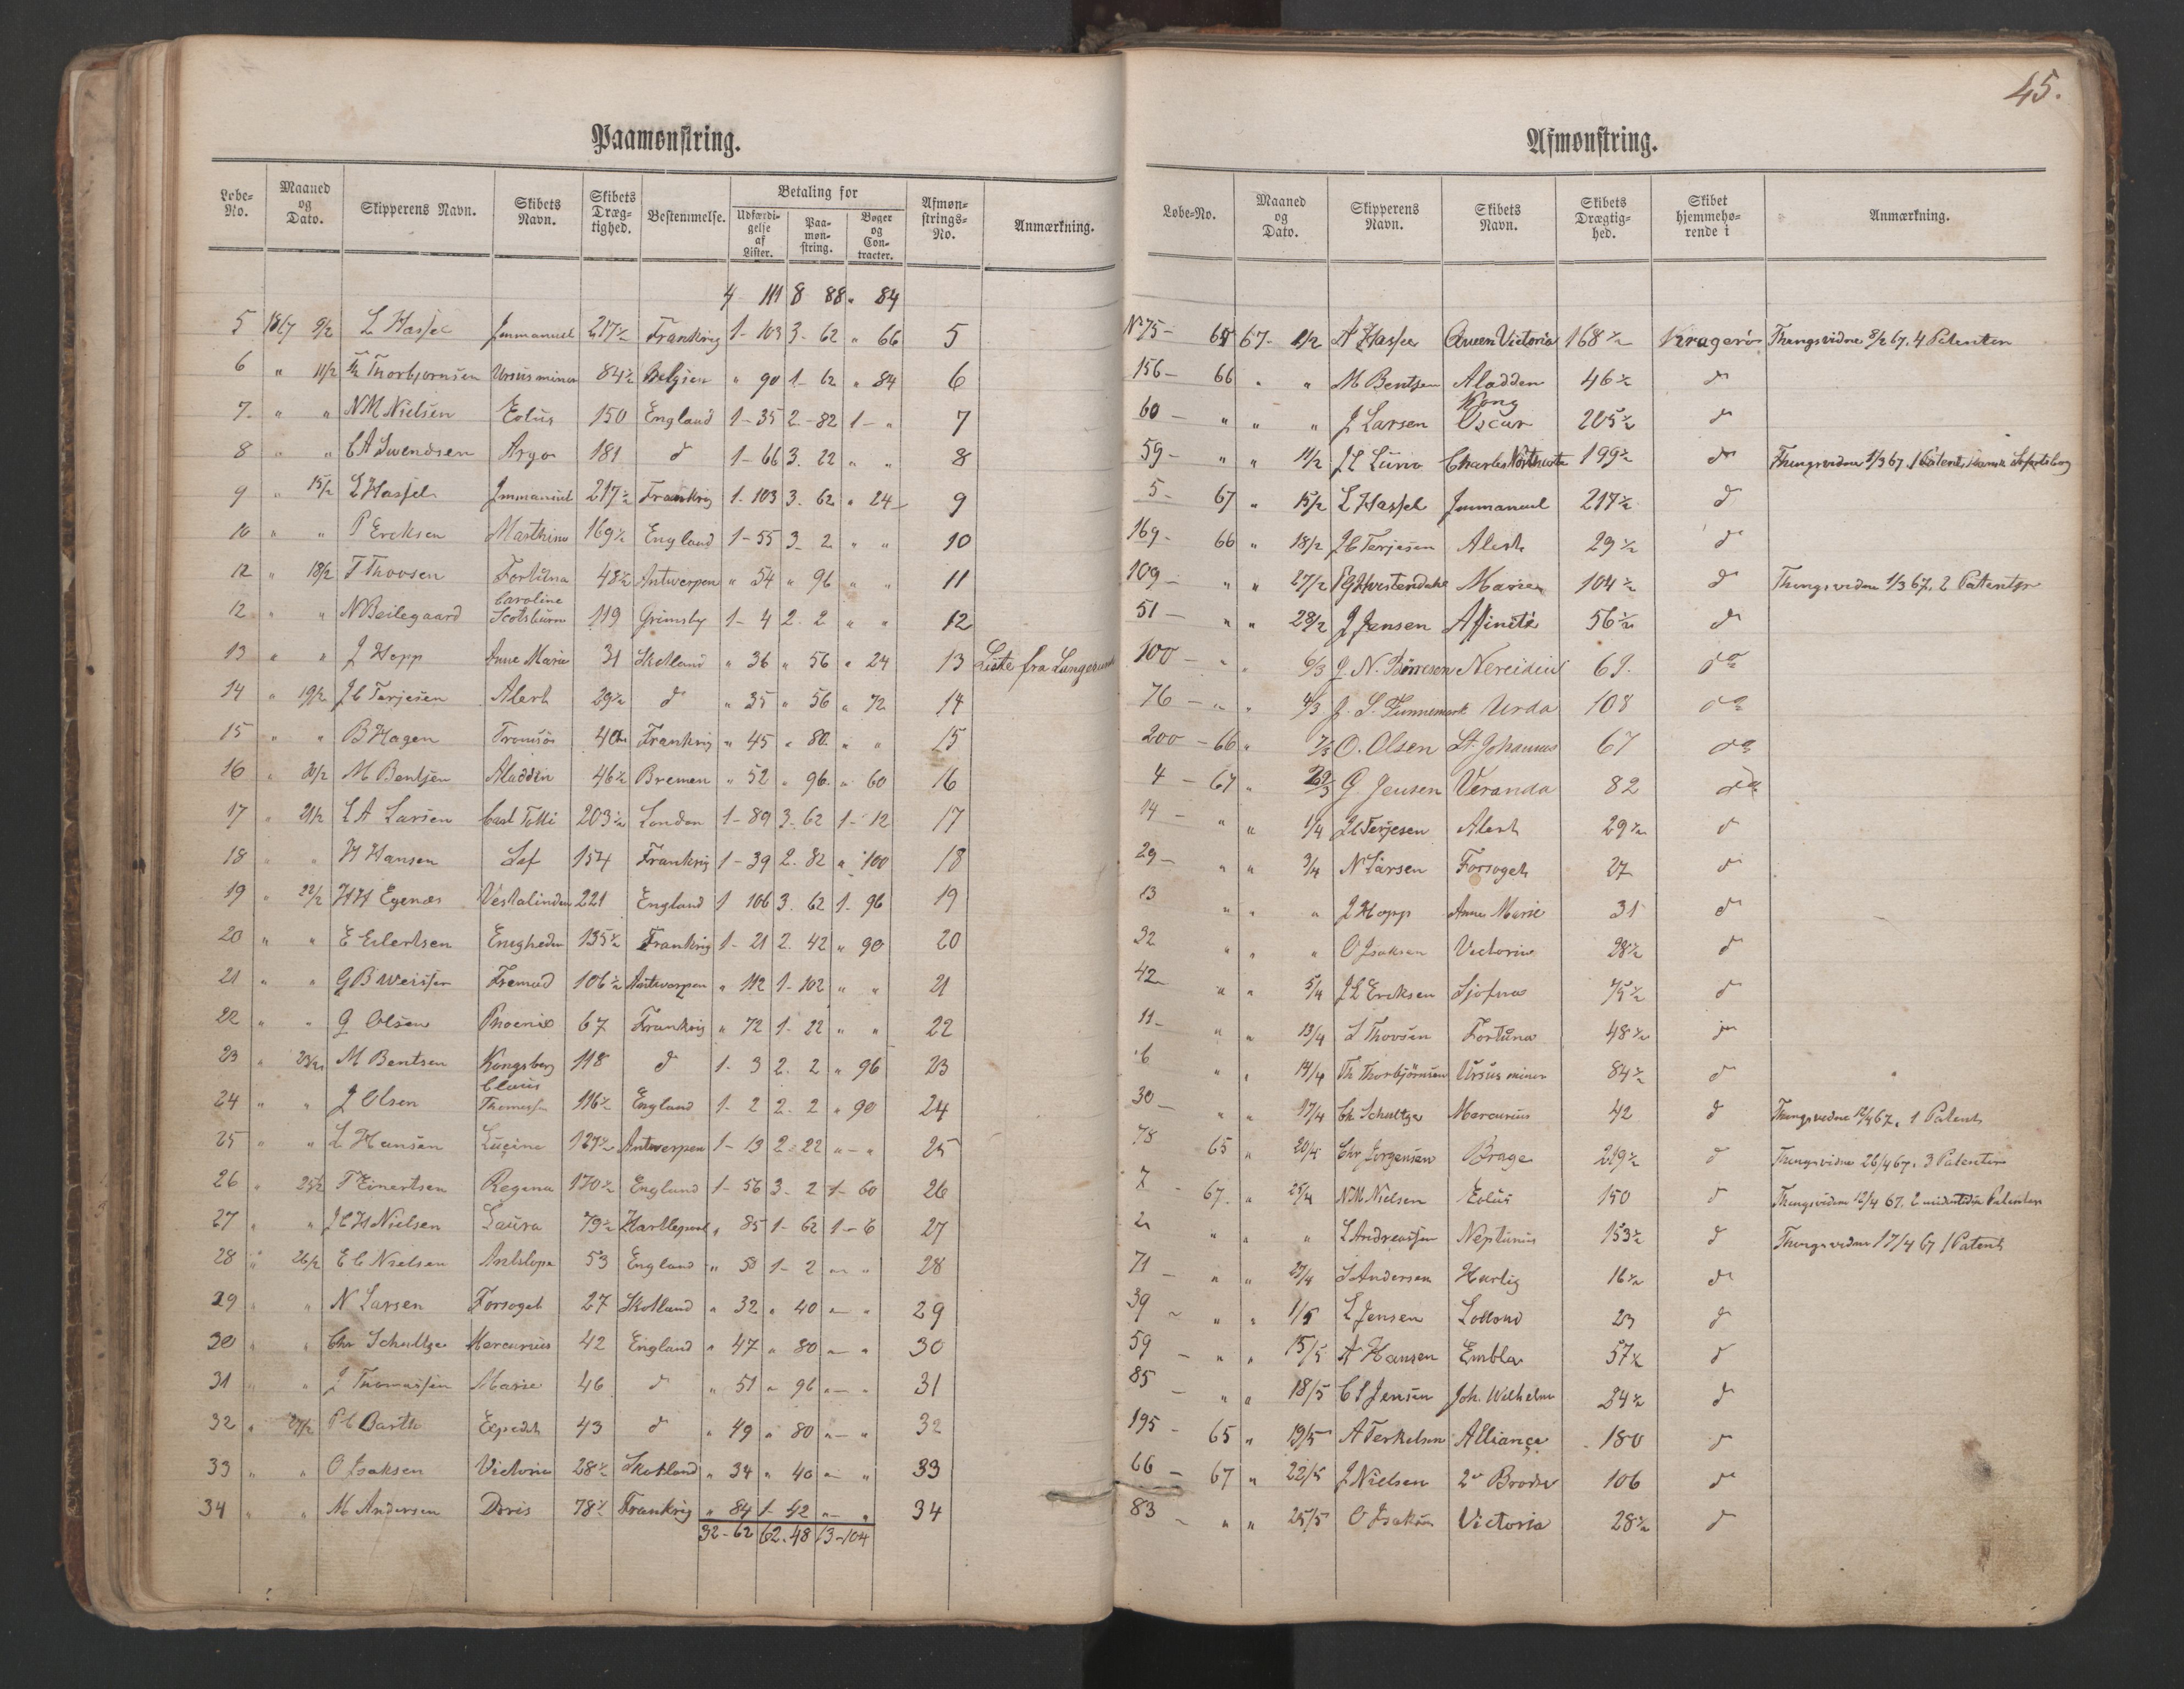 Paamønstring.
Løbe-No. Maaned og Dato. Skipperens Navn. Skibets Navn. Skibets Dræg-tighed. Bestemmelse. Betaling for Udfærdi-gelse af Lister. Paa-møn-string. Bøger og Con-tracter. Afmøn-strings-No. Anmærkning.
4 111 8 88 " 84
5 1867 9/2 L Hassel Immanuel 217½ Frankrig 1- 103 3- 62 " 66 5
6 " 11/2 Th Thorbjørnsen Ursus minor 84½ Belgien " 90 1- 62 " 84 6
7 " " N M Nielsen Eolus 150 England 1- 35 2- 82 1- " 7
8 " " C A Swendsen Argo 181 d 1- 66 3. 22 " " 8
9 " 15/2 L Hassel Immanuel 217½ Frankrig 1- 103 3. 62 " 24 9
10 " " P Ericksen Marthine 169½ England 1- 55 3- 2 " " 10
12 " 18/2 T Thovsen Fortuna 48½ Antwerpen " 54 " 96 " " 11
12 " " N Beilegaard Caroline Scotsburn 119 Grimsby 1- 4 2. 2 " " 12
13 " " J Hopp Anne Marie 31 Skotland " 36 " 56 " 24 13 Liste fra Langesund
14 " 19/2 J C Terjesen Alert 29½ d " 35 " 56 " 72 14
15 " " B Hagen Tromsø 40½ Frankrig " 45 " 80 " " 15
16 " 20/2 M Bentsen Aladdin 46½ Bremen " 52 " 96 " 60 16
17 " 21/2 L A Larsen Carl Totti 203½ London 1- 89 3- 62 1- 12 17
18 " " H Hansen Lef 154 Frankrig 1- 39 2. 82 " 100 18
19 " 22/2 H H Egenæs Vestalinden 221 England 1 106 3. 62 1- 96 19
20 " " E Eilertsen Enigheden 135½ Frankrig 1- 21 2. 42 " 90 20
21 " " G B Weisser Fremad 106½ Antwerpen " 112 1- 102 " " 21
22 " " G Olsen Phoenix 67 Frankrig " 72 1. 22 " " 22
23 " 23/2 M Bentsen Kongsberg 118 d 1- 3 2. 2 " 96 23
24 " " J Olsen Claus Thomesen 116½ England 1- 2 2. 2 " 90 24
25 " " L Hansen Lucine 127½ Antwerpen 1- 13 2- 22 " - " 25
26 " 25/2 T Einertsen Regina 170½ England 1- 56 3- 2 1- 60 26
27 " " J C H Nielsen Laura 79½ Hartlepool " 85 1- 62 1- 6 27
28 " 26/2 E C Nielsen Antilope 53 England " 58 1- 2 " - " 28
29 " " N Larsen Forsøget 27 Skotland " 32 " 40 " - " 29
30 " " Chr Schultze Mercurius 42 England " 47 " 80 " - " 30
31 " " J Thomassen Marie 46 d " 51 " 96 " - " 31
32 " 27/2 P C Barth Expedit 43 d " 49 " 80 " - " 32
33 " " O Isaksen Victoria 28½ Skotland " 34 " 40 " - " 33
34 " " M Andersen Doris 78½ Frankrig " 84 1- 42 " - " 34
32-62 62.48 13-104
45.
Afmønstring.
Løbe-No. Maaned og Dato. Skipperens Navn. Skibets Navn. Skibets Drægtig-hed. Skibet hjemmehø-rende i Anmærkning.
No 75- 65 67- 11/2 A Hassel Queen Victoria 168½ Kragerø Thingsvidne 8/2 67. 4 Patenter
156- 66 " " M Bentsen Aladden 46½ d
60- " " " J Larsen Kong Oscar 205½ d
59- " " 11/2 J C Lund Charles Northcote 199½ d Thingsvidne 1/3 67. 1 Patent
5- 67 " 15/2 L Hassel Immanuel 217½ d
169- 66 " 18/2 J C Terjesen Alert 29½ d
109- " " 27/2 Marie 104½ d Thingsvidne 1/3 67. 2 Patenter
51- " " 28/2 J Jensen Afinité 56½ d
100- " " 6/3 J. N. Børresen Nereiden 69. do
76- " " 4/3 J. S. Tunnemark Urda 108 do
200-66 " 7/3 O. Olsen St. Johannes 67 do
4-67 " 29/3 G Jensen Veranda 82 do
14- " " 1/4 J C Terjesen Alert 29½ d
29- " " 3/4 N Larsen Forsøget 27 d
13 " " " J Hopp Anne Marie 31 d
32 " " " O Isaksen Victoria 28½ d
42- " " 5/4 J L Ericksen Sjofna 75½ d
11- " " 13/4 T Thovsen Fortuna 48½ d
6 " " 14/4 Th Thorbjørnsen Ursus minor 84½ d
30- " " 17/4 Ch Schultze Mercurius 42 d Thingsvidne 12/4 67. 1 Patent
78 65 " 20/4 Chr Jørgensen Brage 219½ d Thingsvidne 26/4 67. 3 Patenter
7- 67. " 25/4 N M Nielsen Eolus 150 d Thingsvidne 12/4 67. 2 Patenter
2 " " " L Andreassen Neptunus 153½ d Thingsvidne 17/4 67 1 Patent
71- " " 27/4 S Andersen Hurtig 16½ d
39- " " 1/5 L Jensen 23 d
59- " " 15/5 A Hansen Embla 57½ d
85- " " 18/5 C S Jensen Joh. Wilhelm 24½ d
195- 65 " 19/5 A Terkelsen Alliance 180 d
66- 67 " 22/5 J Nielsen 2de Brødre 106 d
83- " " 25/5 O Isaksen Victoria 28½ d